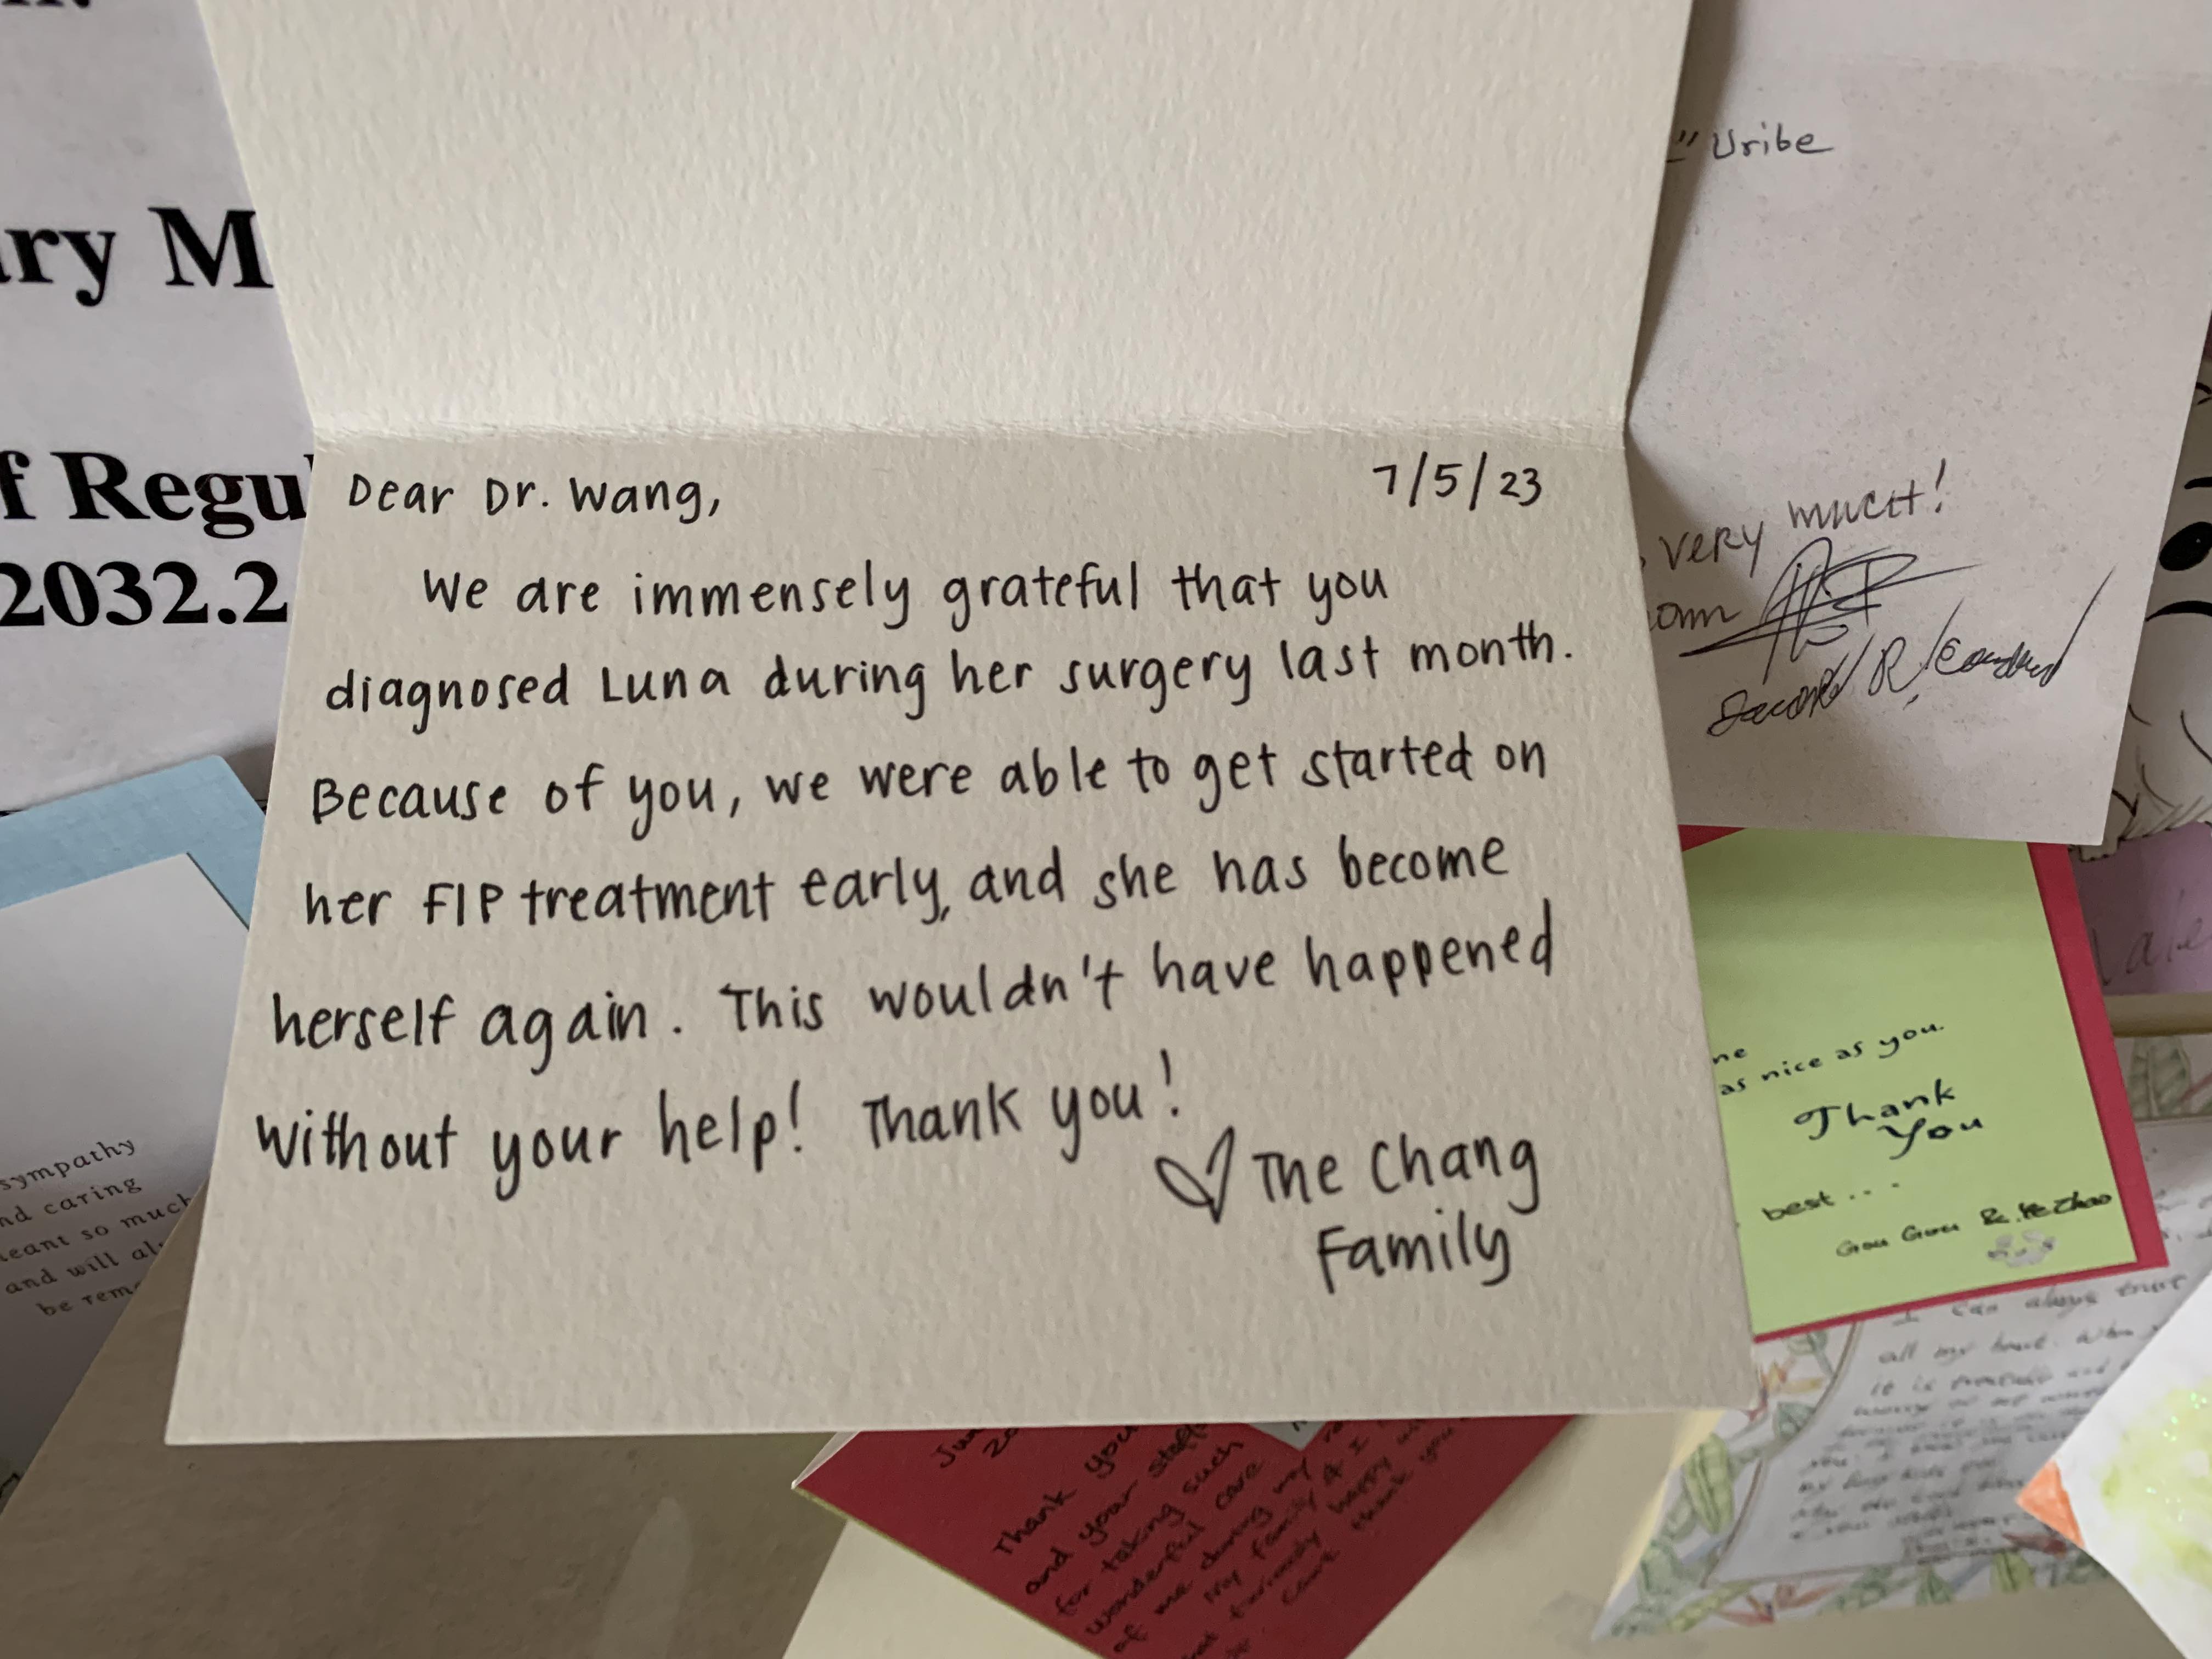 ary M
f Regu
2032.2
Dear Dr. Wang,
7/5/23
We are immensely grateful that you
diagnosed Luna during her surgery last month.
Because of you, we were able to get started on
her FIP treatment early, and she has become
herself again. This wouldn't have happened
without your help! Thank you!
♡ The Chang
Family
" Uribe
, very much!
as nice as you.
Thank
You
best . . .
Gou Gou &
sympathy
nd caring
eant so much
and will al
be rem
Thank you
and your staff
for taking such
wonderful care
of me during my
my family & I
thank you
I can always trust
all my